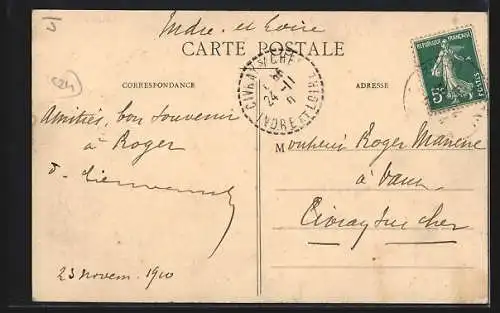 Indre et Loire
CARTE POSTALE
CORRESPONDANCE
ADRESSE
REPUBLIQUE FRANÇAISE
POSTES
5c
CIVRAY S/ CHER
24 -11
INDRE ET LOIRE
24
Amitiés, bon souvenir
à Roger
23 novem. 1910
Monsieur Roger
à Vaux
Civray sur Cher